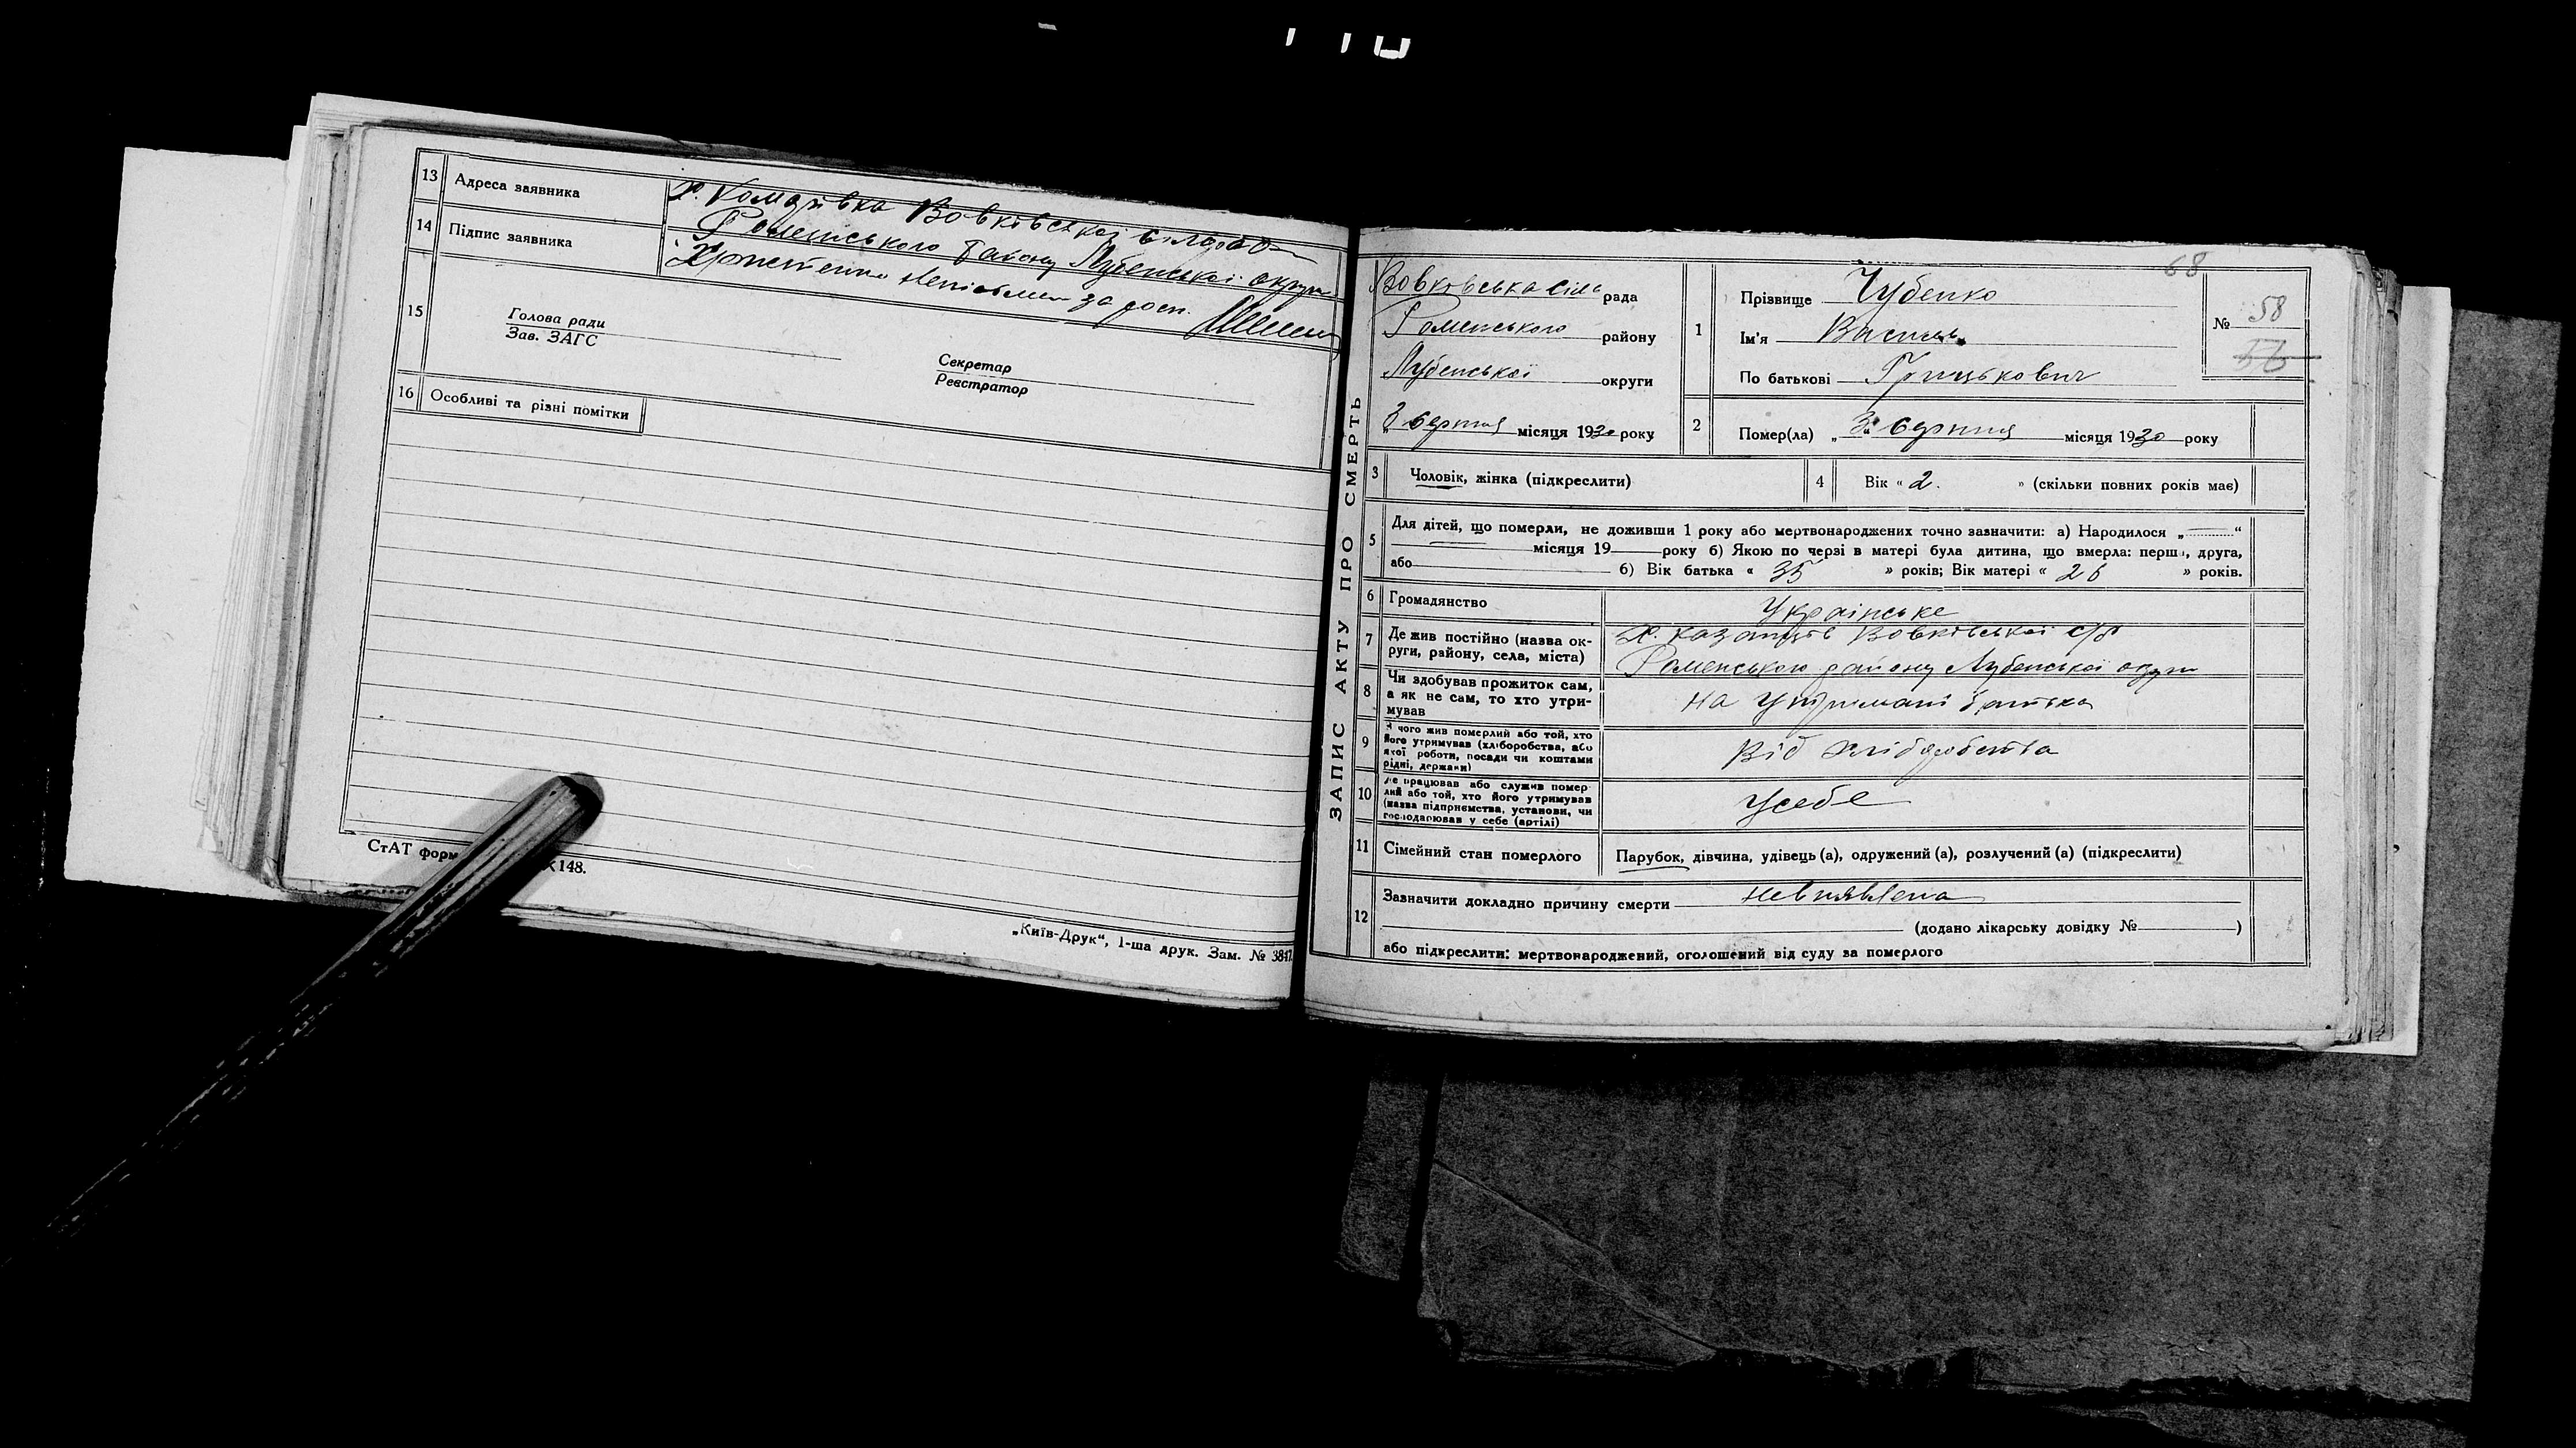 13 Адреса заявника Х. Комарівка Вовківської сільради
Роменського району Лубенської округи
14 Підпис заявника неписьмен за
15
Голова ради
Зав. ЗАГС
Секретар
Реєстратор
16 Особливі та різні помітки
СтАТ форм
148.
„Київ-Друк“, 1-ша друк. Зам. № 3847
ЗАПИС АКТУ ПРО СМЕРТЬ
68
Вовківська сіль рада
Роменського району
Лубенської округи
„3 серпня місяця 1930 року
1 Прізвище Чубенко
Ім'я Василь
По батькові Грицькович
№ 58
2 Помер(ла) „3“ серпня місяця 1930 року
3 Чоловік, жінка (підкреслити)
4 Вік «2.» (скільки повних років має)
5 Для дітей, що померли, не доживши 1 року або мертвонароджених точно зазначити: а) Народилося „ “
місяця 19 року б) Якою по черзі в матері була дитина, що вмерла: перша, друга,
або б) Вік батька « 35 » років; Вік матері « 26 » років.
6 Громадянство Українське
7 Де жив постійно (назва округи, району, села, міста) Х. Вовківської с/р
Роменського району Лубенської округи
8 Чи здобував прожиток сам,
а як не сам, то хто утри-
мував на утримані батька
9 З чого жив померлий або той, хто
його утримував (хліборобства, або
якої роботи, посади чи коштами
рідні, держави) Від хліборобства
10 Де працював або служив помер-
лий або той, хто його утримував
(назва підприємства, установи, чи
господарював у себе (артілі) Усебе
11 Сімейний стан померлого Парубок, дівчина, удівець (а), одружений (а), розлучений (а) (підкреслити)
12 Зазначити докладно причину смерти невиявлена
(додано лікарську довідку № )
або підкреслити: мертвонароджений, оголошений від суду за померлого